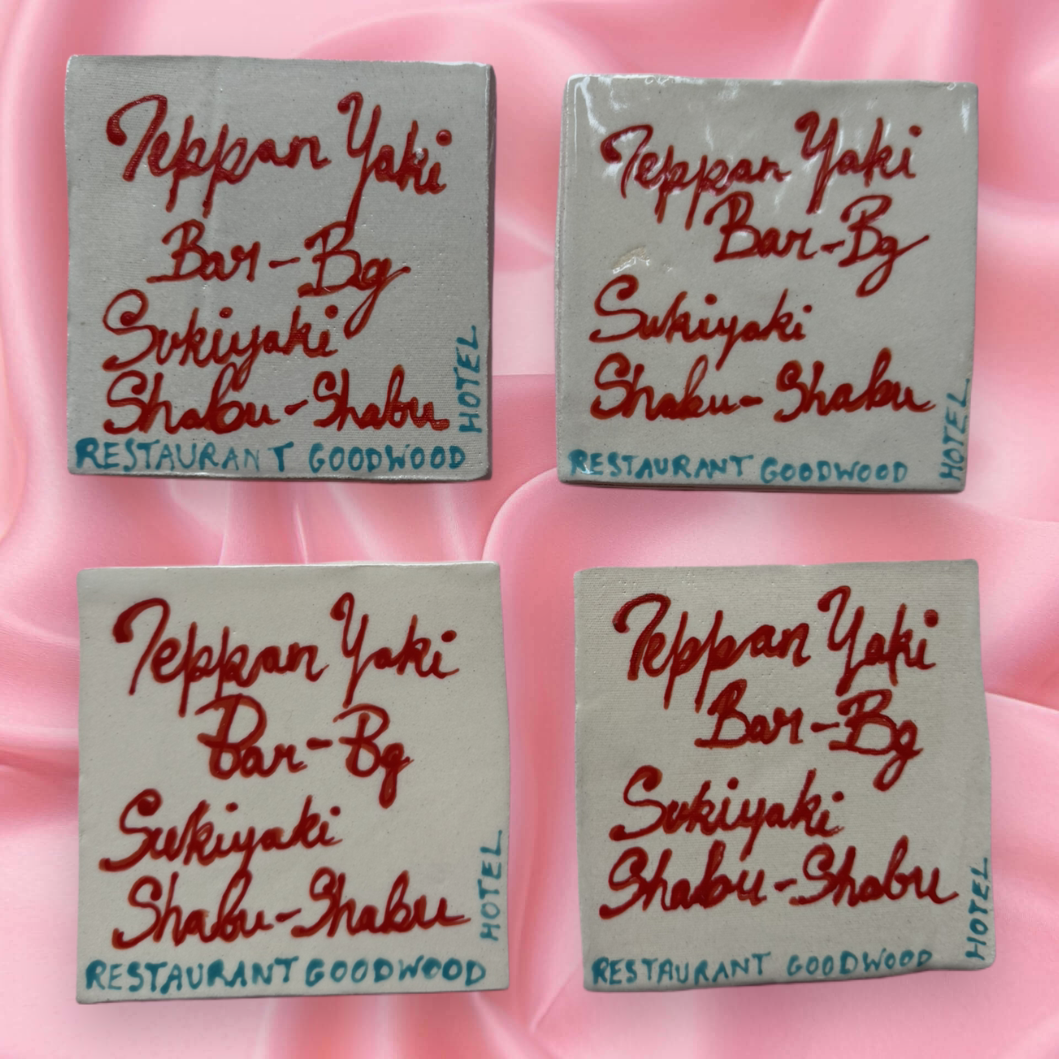 Teppan Yaki
Bar-Bg
Sukiyaki
Shabu-Shabu
HOTEL
RESTAURANT GOODWOOD
Teppan Yaki
Bar-Bg
Sukiyaki
Shabu-Shabu
HOTEL
RESTAURANT GOODWOOD
Teppan Yaki
Bar-Bg
Sukiyaki
Shabu-Shabu
HOTEL
RESTAURANT GOODWOOD
Teppan Yaki
Bar-Bg
Sukiyaki
Shabu-Shabu
HOTEL
RESTAURANT GOODWOOD